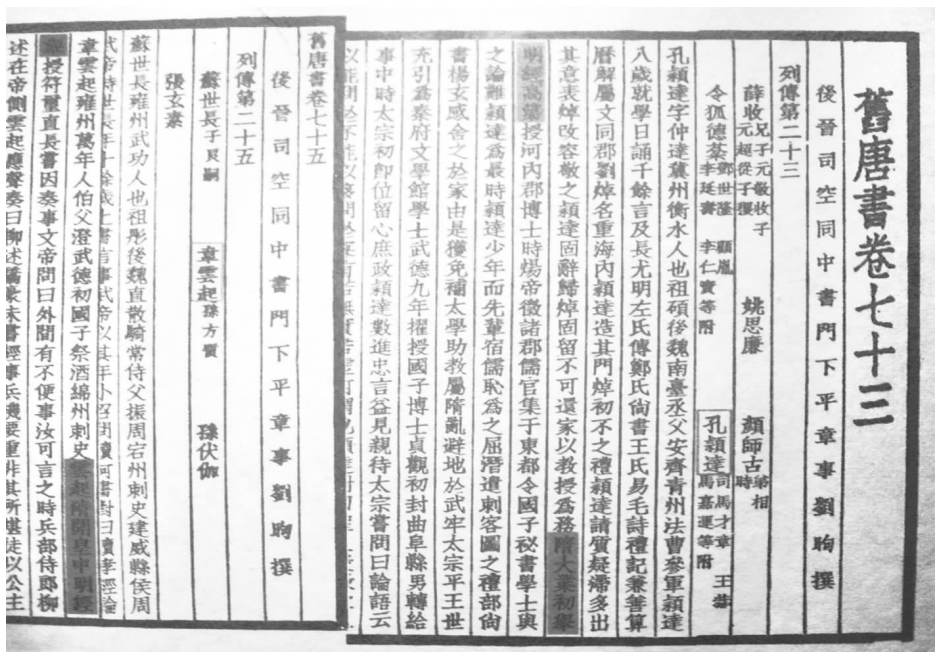 舊唐書卷七十三
後晉司空同中書門下平章事劉昫撰
列傳第二十三
薛收兄子元敬收子元超從子稷 姚思廉 顏師古弟相時
令狐德棻鄧世隆 顧胤 李延壽 李仁實等附 孔穎達司馬才章 王恭 馬嘉運等附
孔穎達字仲達冀州衡水人也祖碩後魏南臺丞父安齊青州法曹參軍穎達
八歲就學日誦千餘言及長尤明左氏傳鄭氏尚書王氏易毛詩禮記兼善算
曆解屬文同郡劉焯名重海內穎達造其門焯初不之禮穎達請質疑滯多出
其意表焯改容敬之穎達固辭歸焯固留不可還家以教授為務隋大業初舉
明經高第授河內郡博士時煬帝徵諸郡儒官集于東都令國子祕書學士與
之論難穎達為最時穎達少年而先輩宿儒恥為之屈潛遣刺客圖之禮部尚
書楊玄感舍之於家由是獲免補太學助教屬隋亂避地於武牢太宗平王世
充引為秦府文學館學士武德九年擢授國子博士貞觀初封曲阜縣男轉給
事中時太宗初即位留心庶政穎達數進忠言益見親待太宗嘗問曰論語云
以能問於不能以多問於寡有若無實若虛何謂也穎達對曰
舊唐書卷七十五
後晉司空同中書門下平章事劉昫撰
列傳第二十五
蘇世長子良嗣 韋雲起孫方質 孫伏伽
張玄素
蘇世長雍州武功人也祖彤後魏直散騎常侍父振周宕州刺史建威縣侯周
武帝時世長年十餘歲上書言事武帝以其年小召問讀何書對曰讀孝經論
韋雲起雍州萬年人伯父澄武德初國子祭酒綿州刺史雲起隋開皇中明經
舉授符璽直長嘗因奏事文帝問曰外間有不便事汝可言之時兵部侍郎柳
述在帝側雲起應聲奏曰柳述驕豪未嘗經事兵機要重非其所堪徒以公主